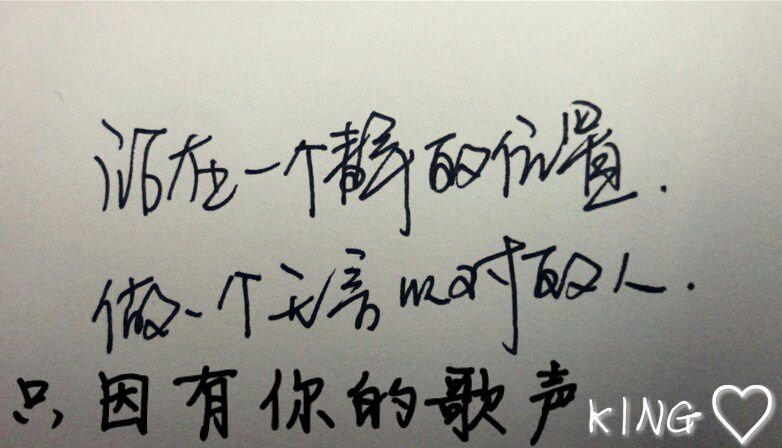 活在一个静的位置.
做一个无言以对的人.
只因有你的歌声 KING♡